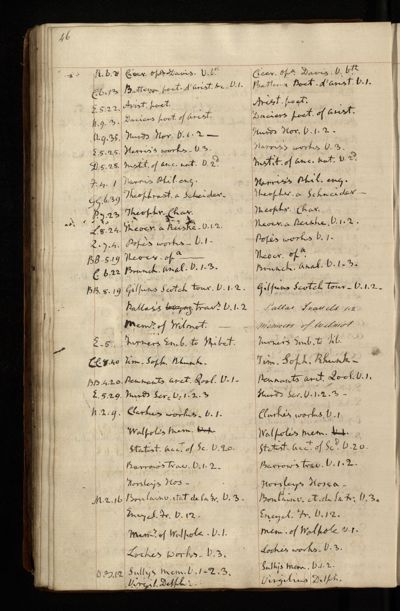 46
N.6.8 Cicer. opa Davis. V.6th Cicer. opa Davis. V.6th
C6.13 Batteux poet. d'arist. &c. V.1. Batteux Poet. d'arist V.1.
E.5.22 Arist. poet. Arist. poet.
N.9.3. Daciers poet of arist. Daciers poet. of arist.
N.9.35. Hurds Hor. V.1.2 — Hurds Hor. V.1.2.
E.5.25 Harris's works. V.3. Harris's works V.3.
D.5.28 Instit. of anc. nat. V.2d Instit. of anc. nat. V.2d.
F.4.1 Harris Phil. enq. Harris's Phil. enq.
Gg.6.39 Theophrast. a Schneider. Theophr. a Schneider —
23 Theophr. Char. Theophr. Char.
L8.24. Theocr. a Reiske. V.1.2. Theocr. a Reiske. V.1.2.
2.7.4. Pope's works — V.1. Pope's works V.1.
BB.5.19 Theocr. opa — Theocr. opa
C6.22 Brunck. anal. V.1-3. Brunck. anal. V.1-3.
BB.5.19 Gilpins Scotch tour. V.1.2. Gilpins Scotch tour. V.1.2.
Pallas's trav. V.1.2 Pallas Travels 1.2
Mem. of Wilmot. — Memoirs of Wilmot
E-5 Turners Emb. to Thibet. Turners Emb. to Tib.
CC8.40 Tim. Soph. Rhunk. Tim. Soph. Rhunk —
BB.4.20. Pennants arct. Zool. V.1- Pennants arct. Zool. V.1.
E.5.29. Hurds Ser. V.1.2.3 Hurds Ser. V.1.2.3 —
N.2.9. Clarkes works. V.1. Clarkes works. V.1
Walpoles mem. Walpoles mem.
Statist. acct. of Sc. V.20. Statist. acct. of Scd V.20
Barrow's trav. V.1.2. Barrow's trav. V.1.2.
Horsleys Hos — Horsleys Hosea.
M.2.16 Boulainv. stat de la fr. V.3. Boulainv. et. de la fr. V.3.
Encycl. Fr. V.12 Encycl. Fr. V.12.
Mem. of Walpole. V.1. Mem. of Walpole V.1.
Lockes works. V.3. Lockes works. V.3.
Sullys mem. V.1-2.3. Sullys mem. V.1.2.
Virgil. Delph. Virgilius Delph.